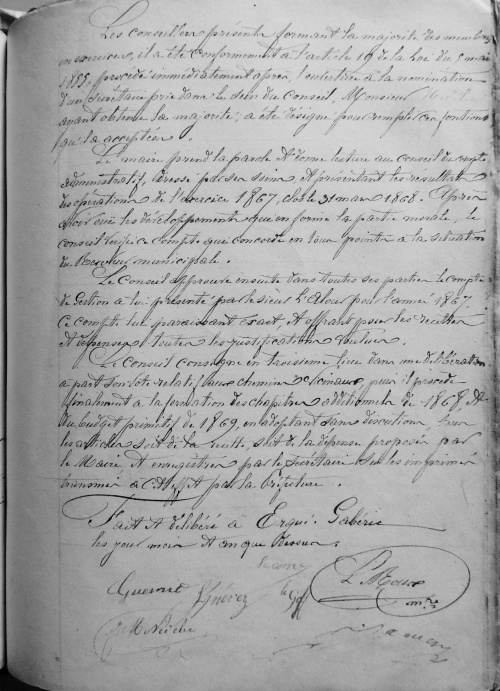 Les conseillers présents formant la majorité des membres
en exercice, il a été conformément à l'article 19 de la Loi du 5 mai
1855, procédé immédiatement après l'ouverture à la nomination
d'un secrétaire pris dans le sein du Conseil, Monsieur
ayant obtenu la majorité, a été désigné pour remplir ces fonctions
qu'il a acceptées.
Le maire prend la parole et donne lecture au conseil du compte
administratif, dressé par ses soins et présentant les resultats
des opérations de l'exercice 1867, clos le 31 mars 1868. Après
avoir ouï les développements qui en forme la partie morale, le
conseil vérifie ce compte qui concorde en tous points à la situation
du Receveur municipale.
Le Conseil approuve ensuite dans toutes ses parties le compte
de Gestion à lui présenté par le sieur pour l'année 1867
ce compte lui paraissant exact, et offrant pour les recettes
et dépenses toutes les justifications voulues.
Le Conseil consigne en troisième lieu dans une délibération
à part son vote relatif aux chemins vicinaux, puis il procède
finalement à la formation des chapitres additionnels de 1868, et
du budget primitif de 1869, en adoptant sans discussion, tous
les articles soit de la recette, soit de la dépense proposés par
le Maire, et enregistrés par le secrétaire sur les imprimés
transmis à cet effet par la Préfecture.
Fait et délibéré à Ergué-Gabéric
les jour, mois et an que dessus.